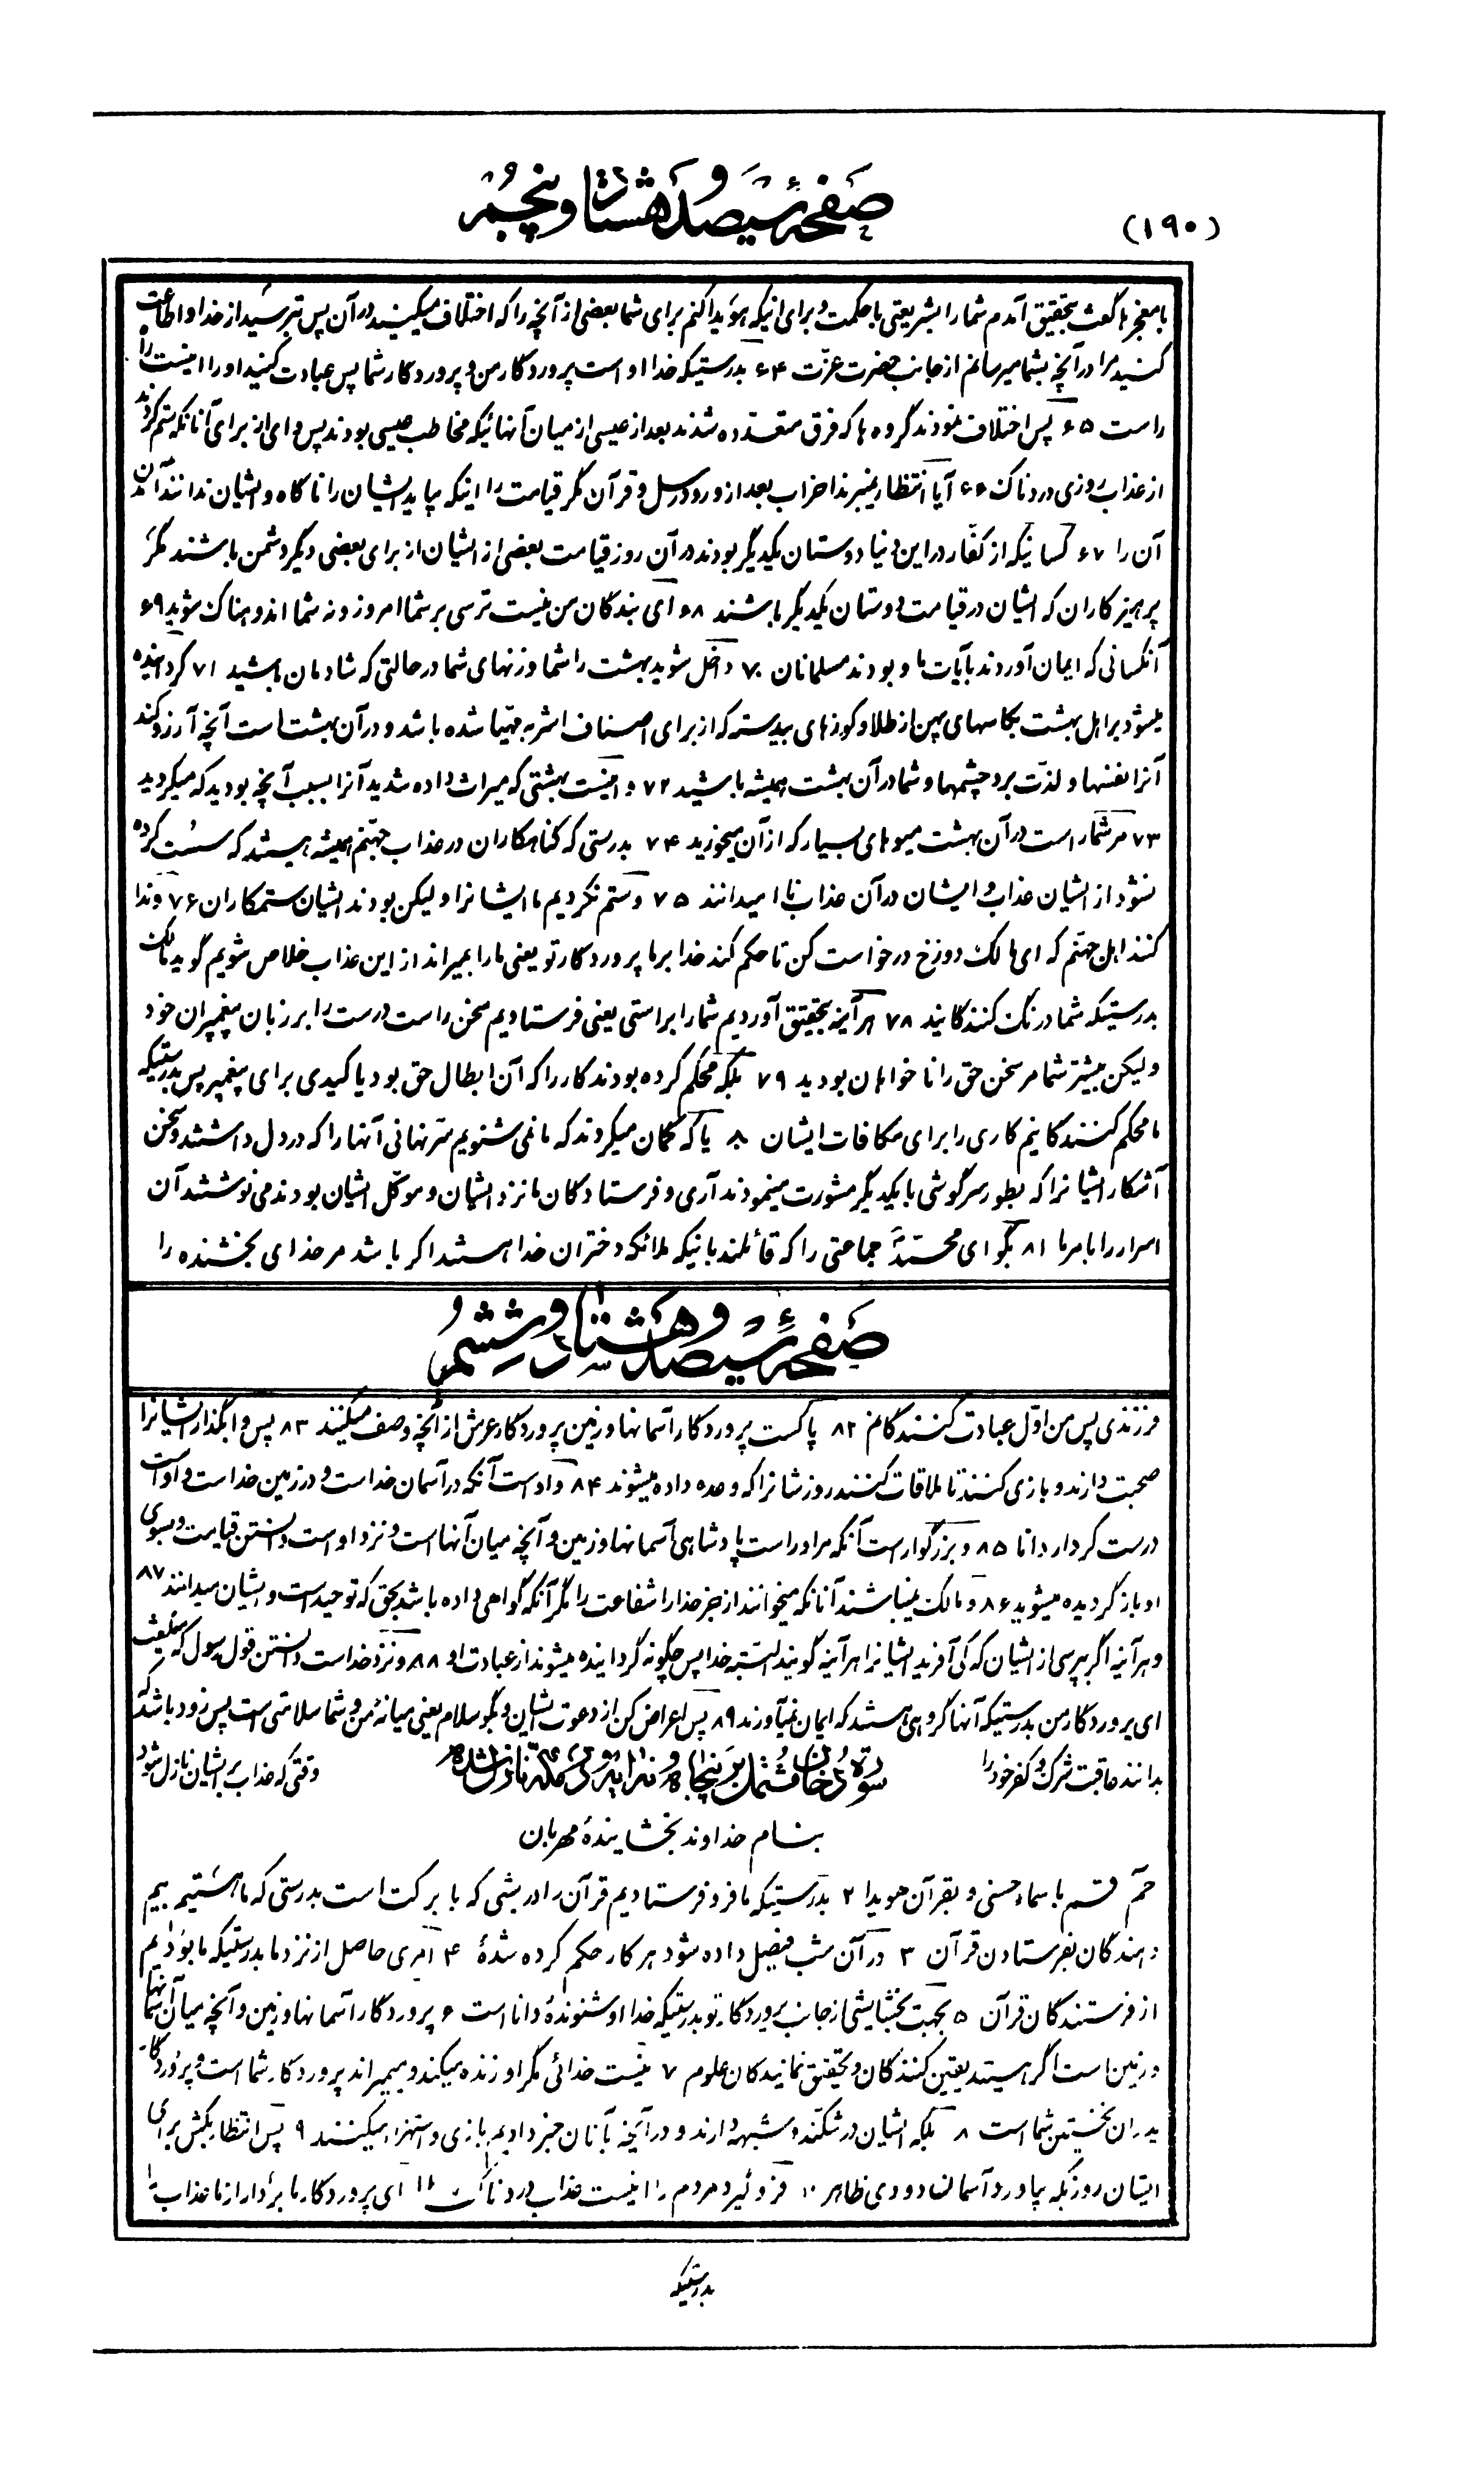 (۱۹۰)
صفحهٔ سیصد و هشتاد و پنجم
با معجزها گفت بتحقیق آمدم شما را بشریعتی با حکمت و برای اینکه هویدا کنم برای شما بعضی از آنچه را که اختلاف میکنید در آن پس بترسید از خدا و اطاعت
کنید مرا در آنچه بشما میرسانم از جانب حضرت عزّت ۶۴ بدرستیکه خدا او است پروردگار من و پروردگار شما پس عبادت کنید او را اینست راه
راست ۶۵ پس اختلاف نمودند گروه ها که فرق متعدده شدند بعد از عیسی از میان آنهائیکه مخاطب عیسی بودند پس وای از برای آنانکه ستم کردند
از عذاب روزی دردناک ۶۶ آیا انتظار میبرند احزاب بعد از ورود رسل و قرآن مگر قیامت را اینکه بیاید ایشان را ناگاه و ایشان ندانند آمدن
آن را ۶۷ کسانیکه از کفّار در این دنیا دوستان یکدیگر بودند در آن روز قیامت بعضی از ایشان از برای بعضی دیگر دشمن باشند مگر
پرهیزکاران که ایشان در قیامت دوستان یکدیگر باشند ۶۸ ای بندگان من نیست ترسی بر شما امروز و نه شما اندوهناک شوید ۶۹
آنکسانی که ایمان آوردند بآیات ما و بودند مسلمانان ۷۰ داخل شوید بهشت را شما و زنهای شما در حالتی که شادمان باشید ۷۱ گردانیده
میشود بر اهل بهشت بکاسهای پهن از طلا و کوزهای بیدسته که از برای اصناف اشربه مهیّا شده باشد و در آن بهشت است آنچه آرزو کند
آنرا نفسها و لذّت برد چشمها و شما در آن بهشت همیشه باشید ۷۲ و اینست بهشتی که میراث داده شدید آنرا بسبب آنچه بودید که میکردید
۷۳ مر شما راست در آن بهشت میوهای بسیار که از آن میخورید ۷۴ بدرستی که گناهکاران در عذاب جهنّم همیشه هستند که سست کرده
نشود از ایشان عذاب و ایشان در آن عذاب ناامیدانند ۷۵ و ستم نکردیم ما ایشانرا و لیکن بودند ایشان ستمکاران ۷۶ و ندا
کنند اهل جهنّم که ای مالک دوزخ درخواست کن تا حکم کند خدا بر ما پروردگار تو یعنی ما را بمیراند از این عذاب خلاص شویم گوید مالک
بدرستیکه شما درنگ کنندگانید ۷۸ هر آینه بتحقیق آوردیم شما را براستی یعنی فرستادیم سخن راست درست را بر زبان پیغمبران خود
ولیکن بیشتر شما مر سخن حق را ناخواهان بودید ۷۹ بلکه محکم کرده بودند کار را که آن ابطال حق بود یا کیدی برای پیغمبر پس بدرستیکه
ما محکم کنندگانیم کاری را برای مکافات ایشان ۸۰ یا که گمان میکردند که ما نمی شنویم سرّ نهانی آنها را که در دل داشتند و سخن
آشکار ایشانرا که بطور سرگوشی با یکدیگر مشورت مینمودند آری و فرستادگان ما نزد ایشان و موکّل ایشان بودند می نوشتند آن
اسرار را بامر ما ۸۱ بگو ای محمّد جماعتی را که قائلند باینکه ملائکه دختران خدا هستند اگر باشد مر خدای بخشنده را
صفحهٔ سیصد و هشتاد و ششم
فرزندی پس من اوّل عبادت کنندگانم ۸۲ پاکست پروردگار آسمانها و زمین پروردگار عرش از آنچه وصف میکنند ۸۳ پس واگذار ایشانرا
صحبت دارند و بازی کنند تا ملاقات کنند روزشانرا که وعده داده میشوند ۸۴ و او است آنکه در آسمان خداست و در زمین خداست و او است
درست کردار دانا ۸۵ و بزرگوار است آنکه مر او راست پادشاهی آسمانها و زمین و آنچه میان آنها است و نزد او است دانستن قیامت و بسوی
او باز گردیده میشوید ۸۶ و مالک نمیباشند آنانکه میخوانند از جز خدا را شفاعت را مگر آنکه گواهی داده باشد بحق که توحید است و ایشان میدانند ۸۷
و هر آینه اگر بپرسی از ایشان که کی آفرید ایشانرا هر آینه گویند البتّه خدا پس چگونه گردانیده میشوند از عبادت او ۸۸ و نزد خداست دانستن قول رسول که میگفت
ای پروردگار من بدرستیکه آنها گروهی هستند که ایمان نمیآورند ۸۹ پس اعراض کن از دعوت ایشان و بگو سلام یعنی میانهٔ من و شما سلامتی است پس زود باشد که
بدانند عاقبت شرک و کفر خود را وقتی که عذاب بر ایشان نازل شود
سورهٔ دخان مشتمل بر پنجاه و نه آیه و در مکّه نازل شده
بنام خداوند بخشایندهٔ مهربان
حمٓ قسم باسماء حسنی و بقرآن هویدا ۲ بدرستیکه ما فرو فرستادیم قرآن را در شبی که با برکت است بدرستی که ما هستیم بیم
دهندگان بفرستادن قرآن ۳ در آن شب فیصل داده شود هر کار حکم کرده شدهٔ ۴ امری حاصل از نزد ما بدرستیکه ما بودیم
از فرستندگان قرآن ۵ بجهت بخشایشی از جانب پروردگار تو بدرستیکه خدا او شنوندهٔ دانا است ۶ پروردگار آسمانها و زمین و آنچه میان آسمانها
و زمین است اگر هستید یقین کنندگان و تحقیق نمایندگان علوم ۷ نیست خدائی مگر او زنده میکند و میمیراند پروردگار شما است و پروردگار
پدران نخستین شما است ۸ بلکه ایشان در شکّند و شبهه دارند و در آنچه بآنان خبر دادیم بازی و استهزاء میکنند ۹ پس انتظار بکش برای
ایشان روزیکه بیاورد آسمان دودی ظاهر ۱۰ فرو گیرد مردم را اینست عذاب دردناک ۱۱ ای پروردگار ما بردار از ما عذاب را
بدرستیکه